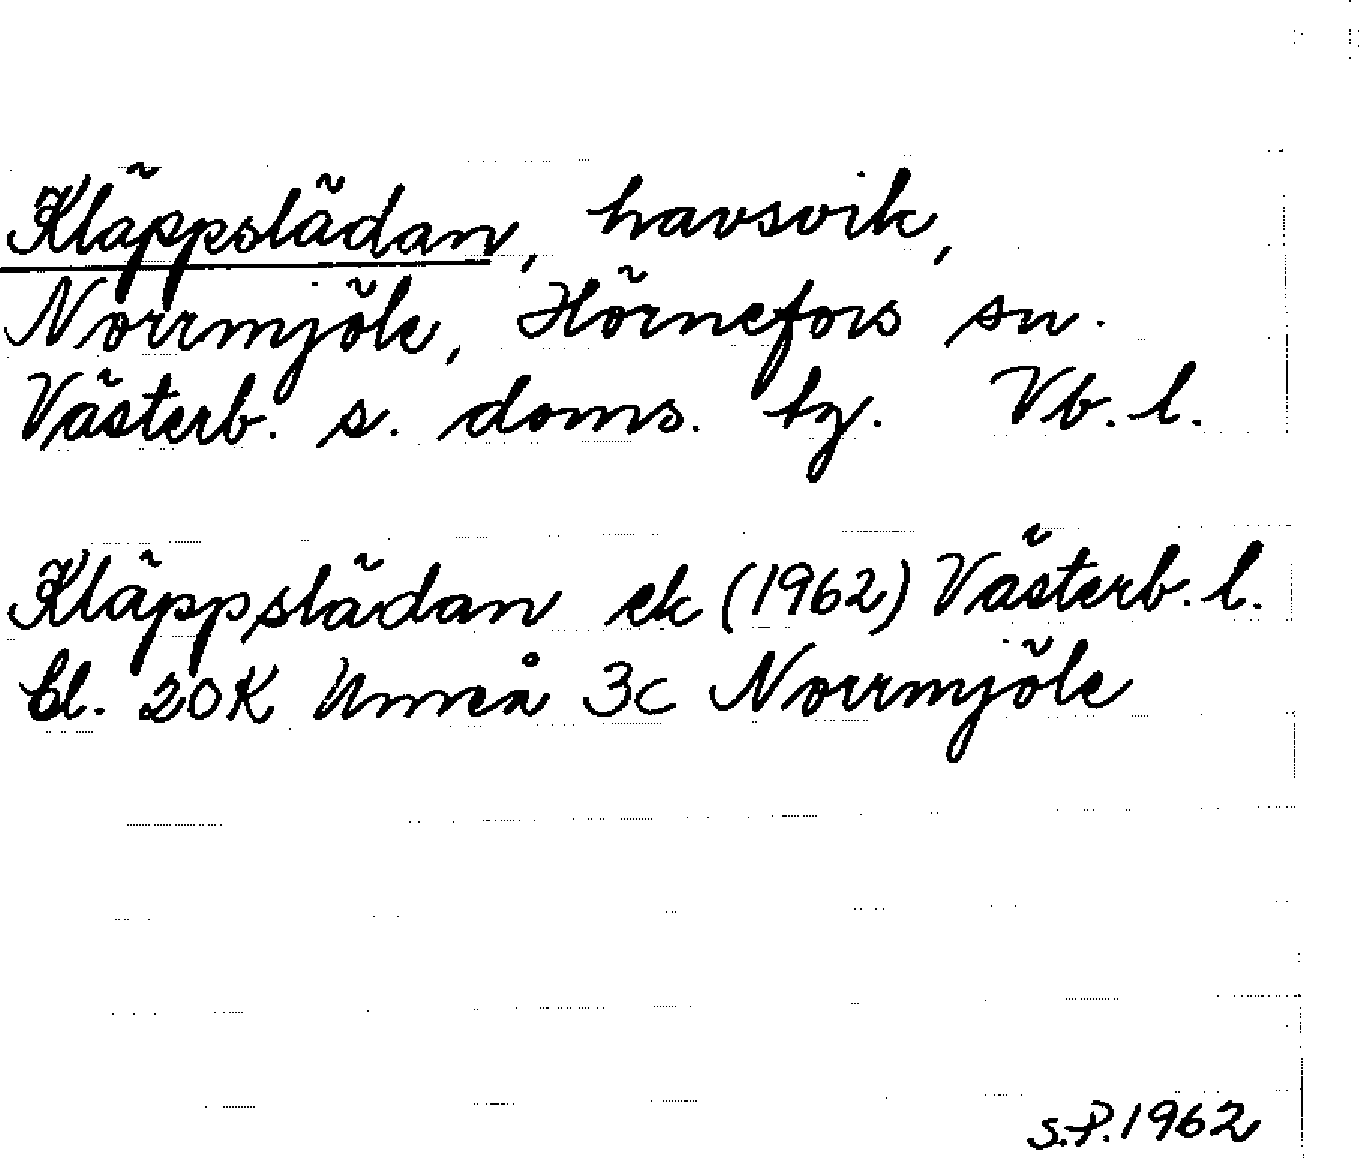 Kläppslädan, havsvik,
Norrmjöle, Hörnefors sn.
Västerb. s. doms. tg. Vb. l.
Kläppslädan ek (1962) Västerb. l.
bl. 20K Umeå 3c Norrmjöle
S.P. 1962